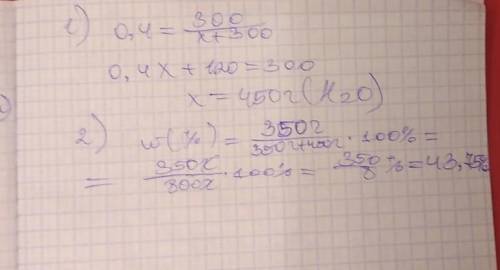 1) 0,4 = 300/(x+300)
0,4x + 120 = 300
x = 450г (H2O)
2) w(%) = 350г/(350г+450г) · 100% =
= 350г/800г · 100% = 350/8 % = 43,75%